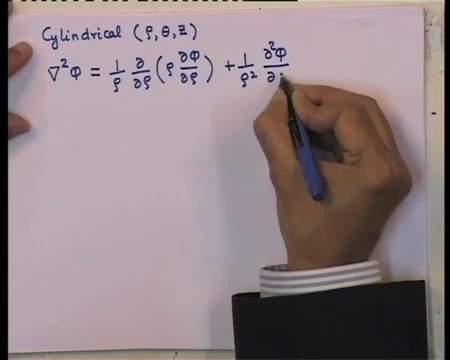 Cylindrical (ρ, θ, z)
∇²φ = 1/ρ ∂/∂ρ (ρ ∂φ/∂ρ) + 1/ρ² ∂²φ/∂